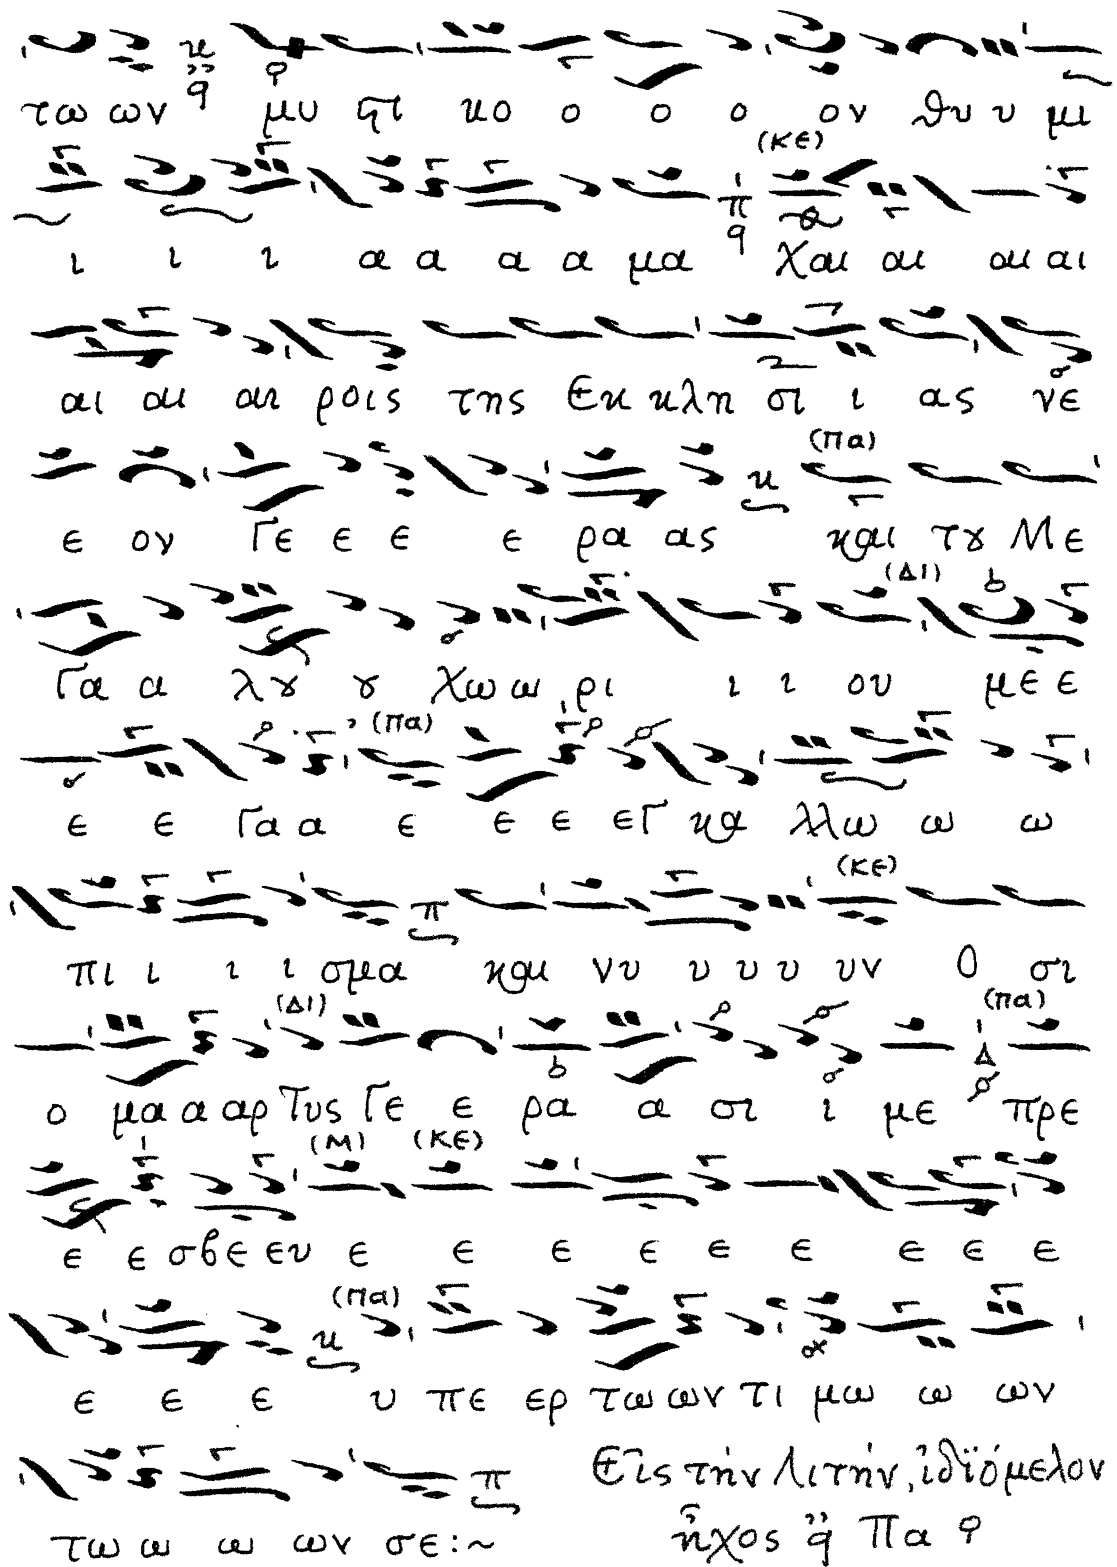 τω ων μυ στι κο ο ο ο ον θυ υ μι
ι ι ι α α α α μα χαι αι αι αι
(κε)
αι αι αι ροις της Εκ κλη σι ι ας νε
ε ον Γε ε ε ε ρα ας και του Με
(Πα)
γα α λου ου χω ω ρι ι ι ου με ε
(Δι)
ε ε γα α ε ε ε εγ κα λλω ω ω
(Πα)
πι ι ι ι σμα και νυ υ υ υ υν Ο σι
(κε)
ο μα α αρ Τυς Γε ε ρα α σι ι με πρε
(Δι) (Πα)
ε ε σβε ευ ε ε ε ε ε ε ε ε ε
(Μ) (κε)
ε ε ε υ πε ερ τω ων τι μω ω ων
(Πα)
τω ω ω ων σε:~
Εἰς τὴν Λιτήν, ἰδιόμελον
ἦχος Πα